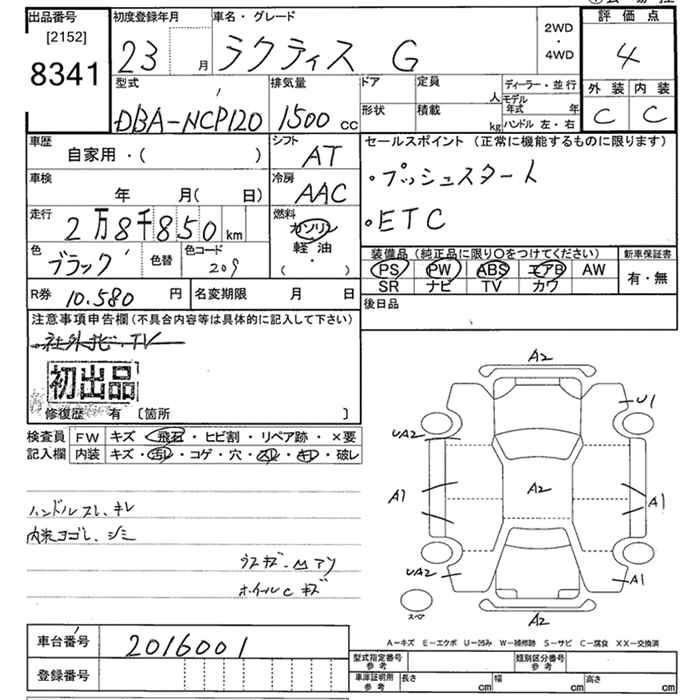 出品番号
[2152]
8341
初度登録年月
23 月
車名・グレード
ラクティス G
2WD
・
4WD
評価点
4
外装 内装
C C
型式
DBA-NCP120
排気量
1500 cc
ドア
形状
定員 人
積載 kg
ディーラー・並行
モデル年式 年
ハンドル 左・右
車歴
自家用・( )
シフト
AT
車検
年 月( 日)
冷房
AAC
走行
2万8千850 km
燃料
ガソリン
軽油
( )
色
ブラック
色替
色コード
209
R券 10.580 円
名変期限 月 日
セールスポイント (正常に機能するものに限ります)
・プッシュスタート
・ETC
装備品 (純正品に限り○をつけてください)
PS PW ABS エアB AW
SR ナビ TV カワ
新車保証書
有・無
後日品
注意事項申告欄 (不具合内容等は具体的に記入して下さい)
・社外ナビ・TV
初出品
修復歴 有 〔箇所 〕
検査員記入欄
FW キズ・飛石・ヒビ割・リペア跡・×要
内装 キズ・汚レ・コゲ・穴・スレ・キレ・破レ
ハンドルスレ、キレ
内装ヨゴレ、シミ
ウスキズ・凹アリ
ホイールC キズ
A2
U1
UA2
A1
A2
A1
UA2
A1
スペア
A2
A-キズ E-エクボ U-凹み W-補修跡 S-サビ C-腐食 XX-交換済
車台番号 2016001
登録番号
型式指定番号
参考
類別区分番号
参考
車庫証明用
参考
長さ cm
幅 cm
高さ cm